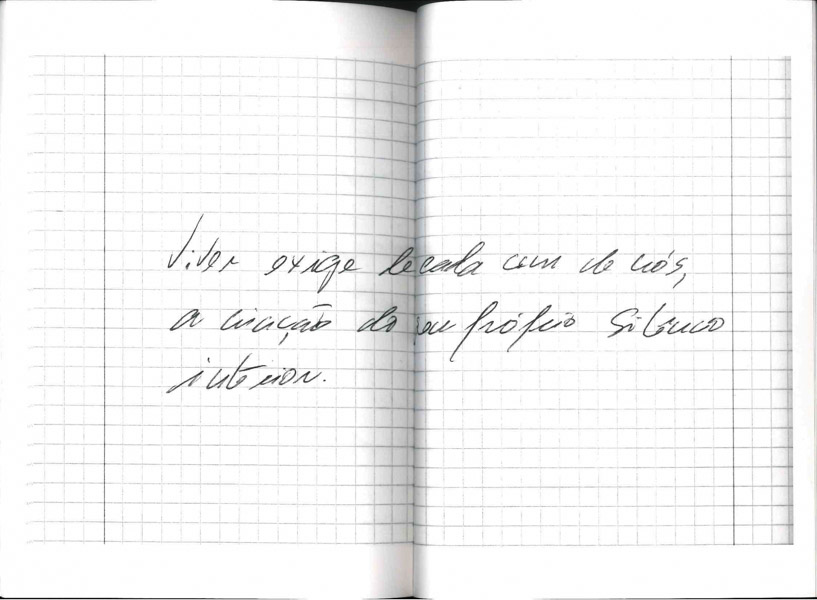 Viver exige de cada um de nós,
a criação do seu próprio silêncio
interior.